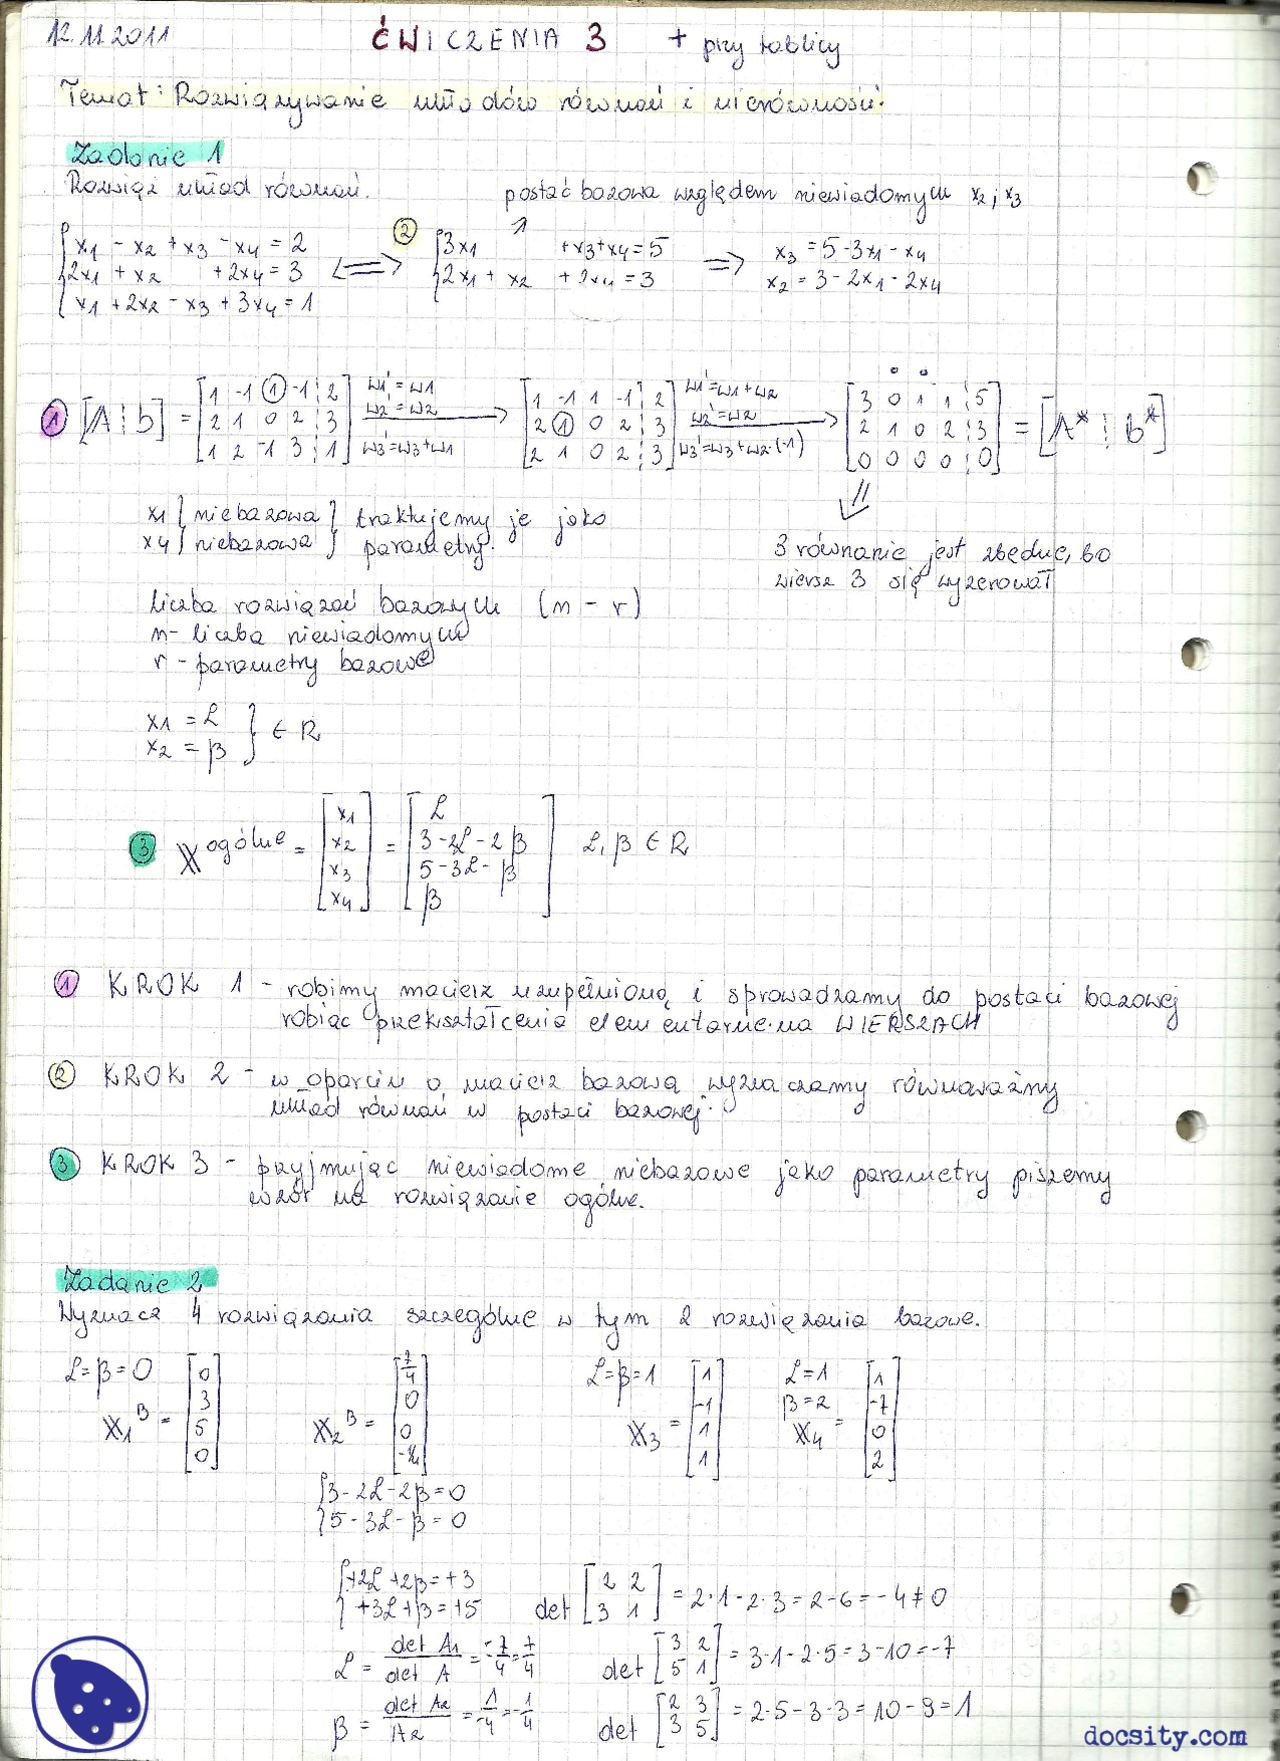 12.11.2011 ĆWICZENIA 3 + przy tablicy
Temat: Rozwiązywanie układów równań i nierówności.
Zadanie 1
Rozwiąż układ równań. postać bazowa względem niewiadomych x2 i x3
x1 - x2 + x3 - x4 = 2
2x1 + x2 + 2x4 = 3
x1 + 2x2 - x3 + 3x4 = 1
⟺ ② 3x1 + x3 + x4 = 5
2x1 + x2 + 2x4 = 3
⇒ x3 = 5 - 3x1 - x4
x2 = 3 - 2x1 - 2x4
① [A ⋮ b] =
1 -1 1 -1 ⋮ 2
2 1 0 2 ⋮ 3
1 2 -1 3 ⋮ 1
w1' = w1
w2' = w2
w3' = w3 + w1
1 -1 1 -1 ⋮ 2
2 1 0 2 ⋮ 3
2 1 0 2 ⋮ 3
w1' = w1 + w2
w2' = w2
w3' = w3 + w2·(-1)
3 0 1 1 ⋮ 5
2 1 0 2 ⋮ 3
0 0 0 0 ⋮ 0
= [A* ⋮ b*]
x1 niebazowa } traktujemy je jako
x4 niebazowa } parametry.
3 równanie jest zbędne, bo
wiersz 3 się wyzerował
liczba rozwiązań bazowych (n - r)
n - liczba niewiadomych
r - parametry bazowe
x1 = α
x2 = β } ∈ R
③ X ogólne = [x1 x2 x3 x4] =
α
3 - 2α - 2β
5 - 3α - β
β
α, β ∈ R
① KROK 1 - robimy macierz uzupełnioną i sprowadzamy do postaci bazowej
robiąc przekształcenia elementarne na WIERSZACH
② KROK 2 - w oparciu o macierz bazową wyznaczamy równoważny
układ równań w postaci bazowej.
③ KROK 3 - przyjmując niewiadome niebazowe jako parametry piszemy
wzór na rozwiązanie ogólne.
Zadanie 2
Wyznacz 4 rozwiązania szczególne w tym 2 rozwiązania bazowe.
α = β = 0
X1^B = [0 3 5 0]
X2^B = [7/4 0 0 -1/4]
α = β = 1
X3 = [1 -1 1 1]
α = 1
β = 2
X4 = [1 -7 0 2]
3 - 2α - 2β = 0
5 - 3α - β = 0
+2α + 2β = +3
+3α + β = +5
det [2 2 3 1] = 2·1 - 2·3 = 2 - 6 = -4 ≠ 0
α = det A1 / det A = -7/-4 = 7/4
det [3 2 5 1] = 3·1 - 2·5 = 3 - 10 = -7
β = det A2 / A2 = 1/-4 = -1/4
det [2 3 3 5] = 2·5 - 3·3 = 10 - 9 = 1
docsity.com